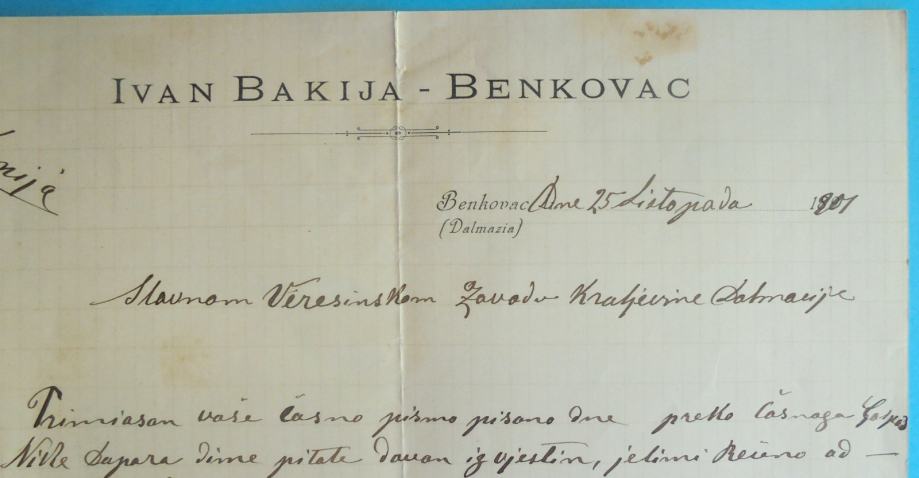 IVAN BAKIJA - BENKOVAC
nija
Benkovac Dne 25 Listopada 1901
(Dalmazia)
Slavnom Veresinskom Zavodu Kraljevine Dalmacije
Primiasan vaše časno pismo pisano dne preko časnaga
Nikle Dapara dime pitate davan izvjestin, jelimi Rečeno od —